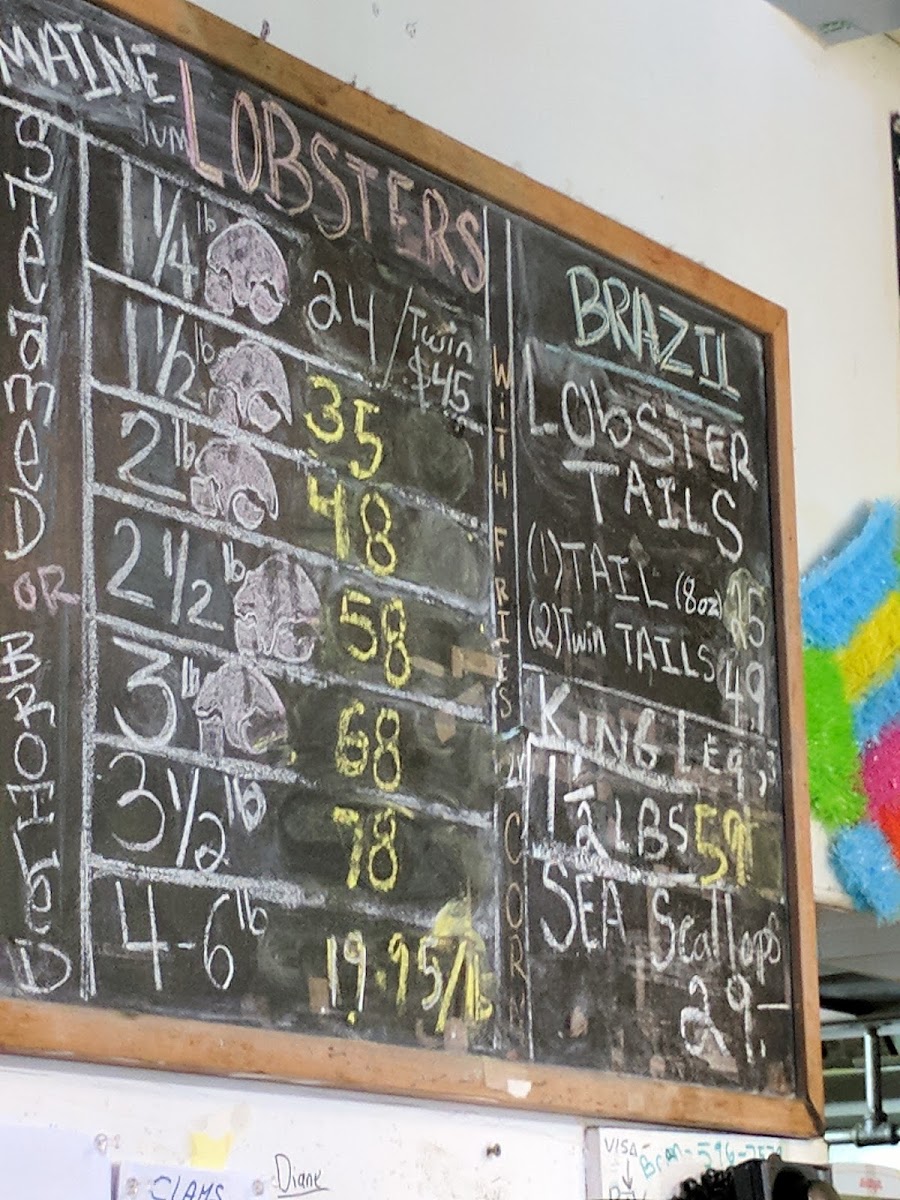 MAINE LOBSTERS
SteameD OR BROILeD
1 1/4 lb 24 / Twin $45
1 1/2 lb 35
2 lb 48
2 1/2 lb 58
3 lb 68
3 1/2 lb 78
4-6 lb 19.95/lb
WITH FRIES & COR
BRAZIL
LObSTER
TAILS
(1) TAIL (8oz) 25
(2) Twin TAILS 49
KING Legs
1 1/2 LBS 59
SEA Scallops
29.-
CLAMS
Diane
VISA